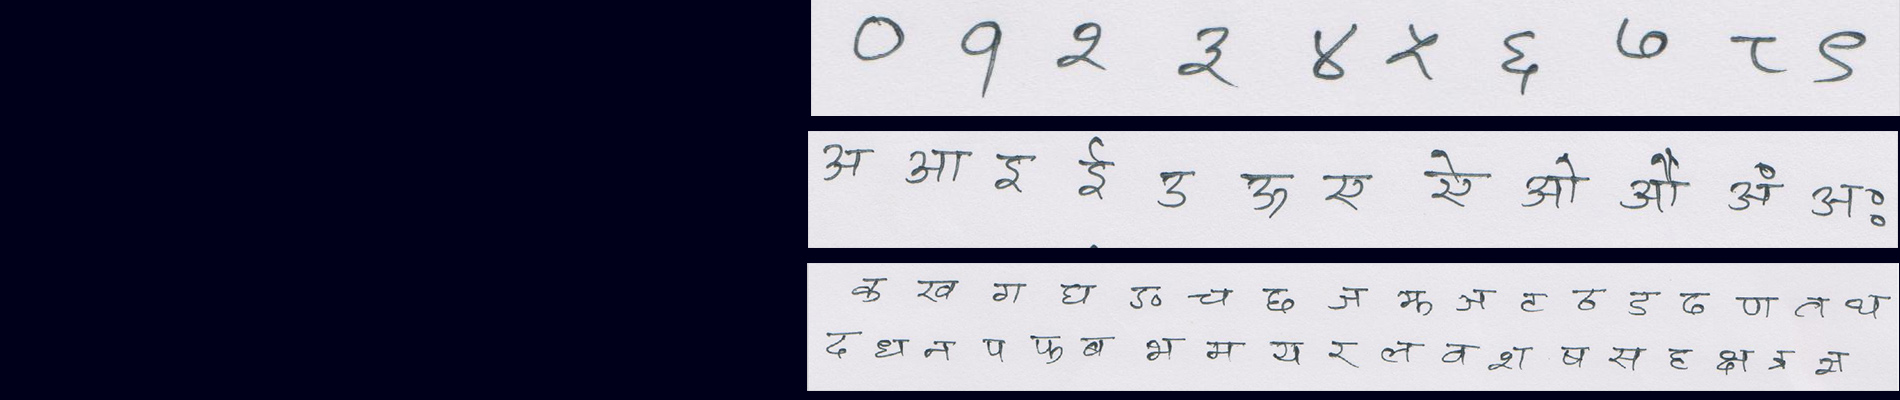 ० १ २ ३ ४ ५ ६ ७ ८ ९
अ आ इ ई उ ऊ ए ऐ ओ औ अं अः
क ख ग घ ङ च छ ज झ ञ ट ठ ड ढ ण त थ
द ध न प फ ब भ म य र ल व श ष स ह क्ष त्र ज्ञ